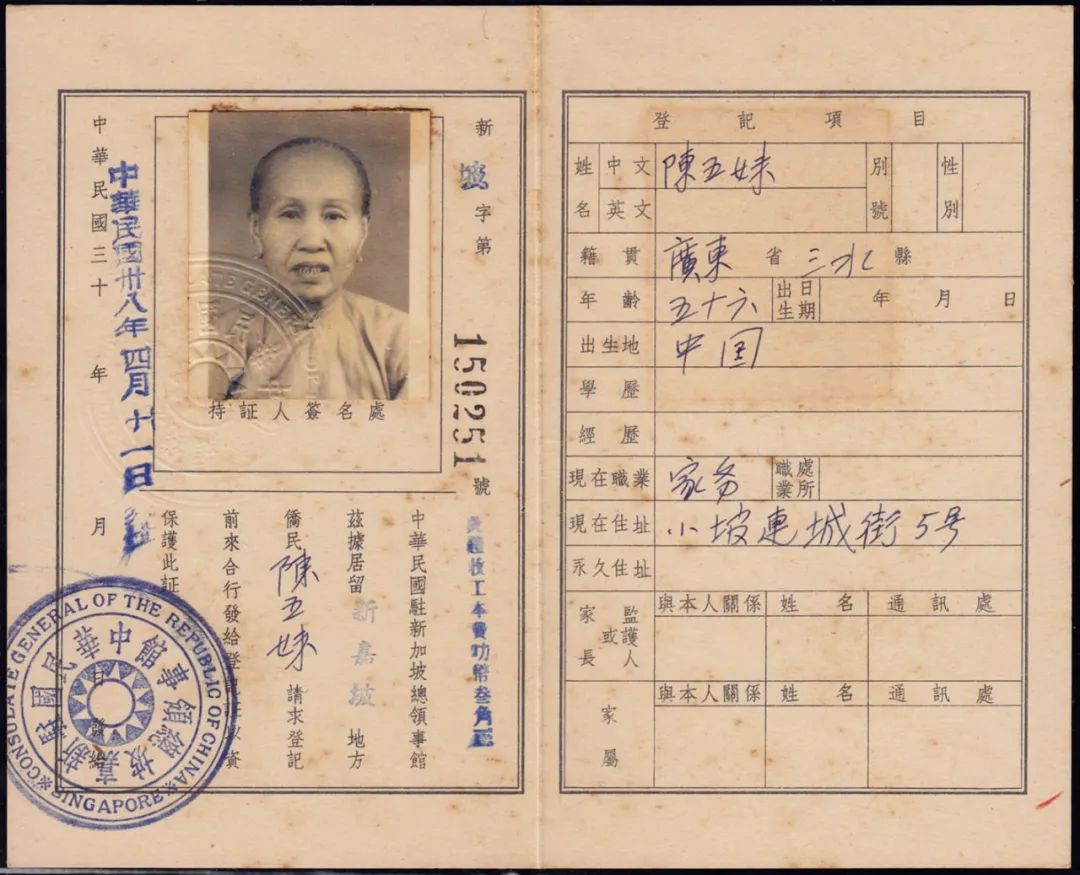 新坡字第150251號
持証人簽名處
收工本費叻幣叁角正
中華民國駐新加坡總領事館
茲據居留新嘉坡地方
僑民陳五妹請求登記
前來合行發給登 以資
保護此証
中華民國三十 年 月 日 發給
中華民國卅八年四月 一日
CONSULATE GENERAL OF THE REPUBLIC OF CHINA
SINGAPORE
中華民國駐新嘉坡總領事館
登記項目
姓名 中文 陳五妹 別號 性別
英文
籍貫 廣東省三水縣
年齡 五十六 出生日期 年 月 日
出生地 中国
學歷
經歷
現在職業 家务 職業處所
現在住址 小坡連城街5号
永久住址
家長或監護人 與本人關係 姓名 通訊處
家屬 與本人關係 姓名 通訊處